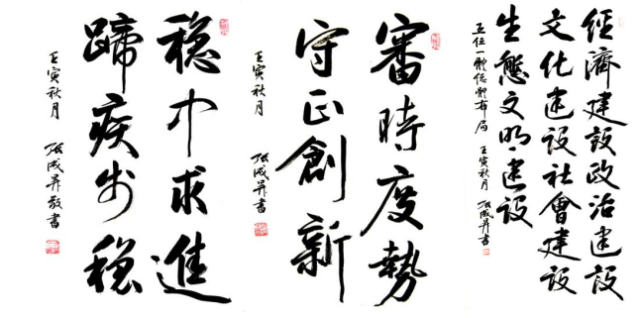 經濟建設政治建設
文化建設社會建設
生態文明建設
五位一體總體布局 壬寅秋月 張成昇書
審時度勢
守正創新
壬寅秋月 張成昇書
稳中求進
蹄疾步稳
壬寅秋月 張成昇敬書